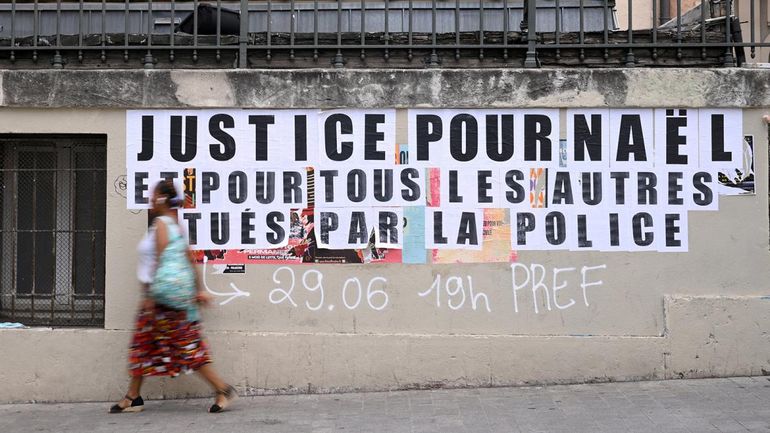 JUSTICE POUR NAËL
ET POUR TOUS LES AUTRES
TUÉS PAR LA POLICE
→ 29.06 19h PREF